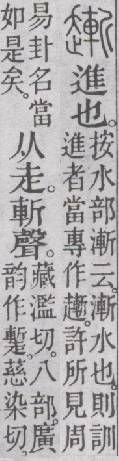 𧽯進也。
按水部漸云。漸水也。則訓
進者當專作𧽯。許所見周
易卦名當
如是矣。
从走。斬聲。
藏濫切。八部。廣
韵作蹔。慈染切。